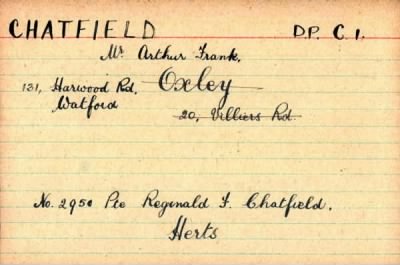 CHATFIELD DP. C 1.
Mr. Arthur Frank.
131, Harwood Rd. Oxley
Watford
20, Villiers Rd.
No. 2950 Pte Reginald F. Chatfield.
Herts